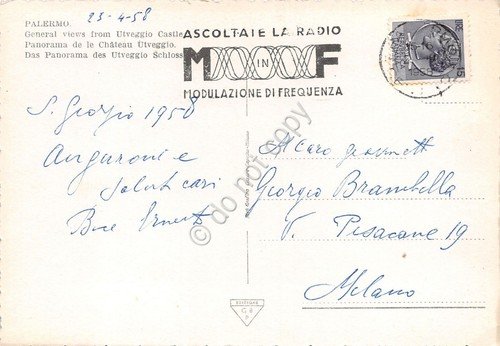 23-4-58
PALERMO:
General views from Utveggio Castle
Panorama de le Château Utveggio.
Das Panorama des Utveggio Schloss
ASCOLTATE LA RADIO
M IN F
MODULAZIONE DI FREQUENZA
15
S. Giorgio 1958
Auguroni e
saluti cari
do not copy
Al caro
Giorgio Brambilla
V. Pisacane 19
Milano
EDIZIONE